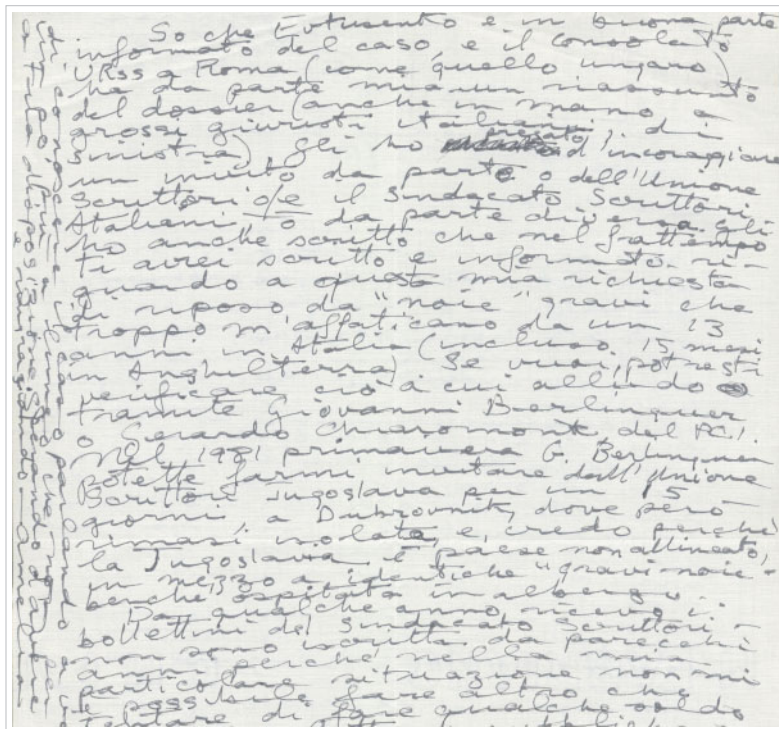 So che Evtusento è in buona parte
informato del caso, e il consolato
URSS a Roma (come quello ungaro)
ha da parte mia un riassunto
del dossier (anche in mano a
grossi giuristi italiani, di
sinistra), gli ho pregato d'incoraggiare
un invito da parte o dell'Unione
Scrittori o/e il Sindacato Scrittori
Italiani, o da parte diversa. gli
ho anche scritto che nel frattempo
ti avrei scritto e informato ri-
guardo a questa mia richiesta
di riposo da "noie" gravi che
troppo m'affaticano da un 13
anni in Italia (incluso 15 mesi
in Anghilterra). Se vuoi, potresti
verificare ciò a cui alludo
tramite Giovanni Berlinguer
o Gerardo Chiaromonte del PC.I.
Nel 1981 primavera G. Berlinguer
potette farmi invitare dall'Unione
Scrittori Jugoslava per un 15
giorni a Dubrovnik, dove però
rimasi isolata, e, credo perché
la Jugoslavia è paese non allineato,
in mezzo a identiche "gravi noie" -
benché ospitata in albergo.
Da qualche anno ricevo i
bollettini del Sindacato Scrittori -
non sono iscritta da parecchi
anni perché nella mia
particolare situazione non mi
è possibile fare altro che
tentare di fare qualche soldo